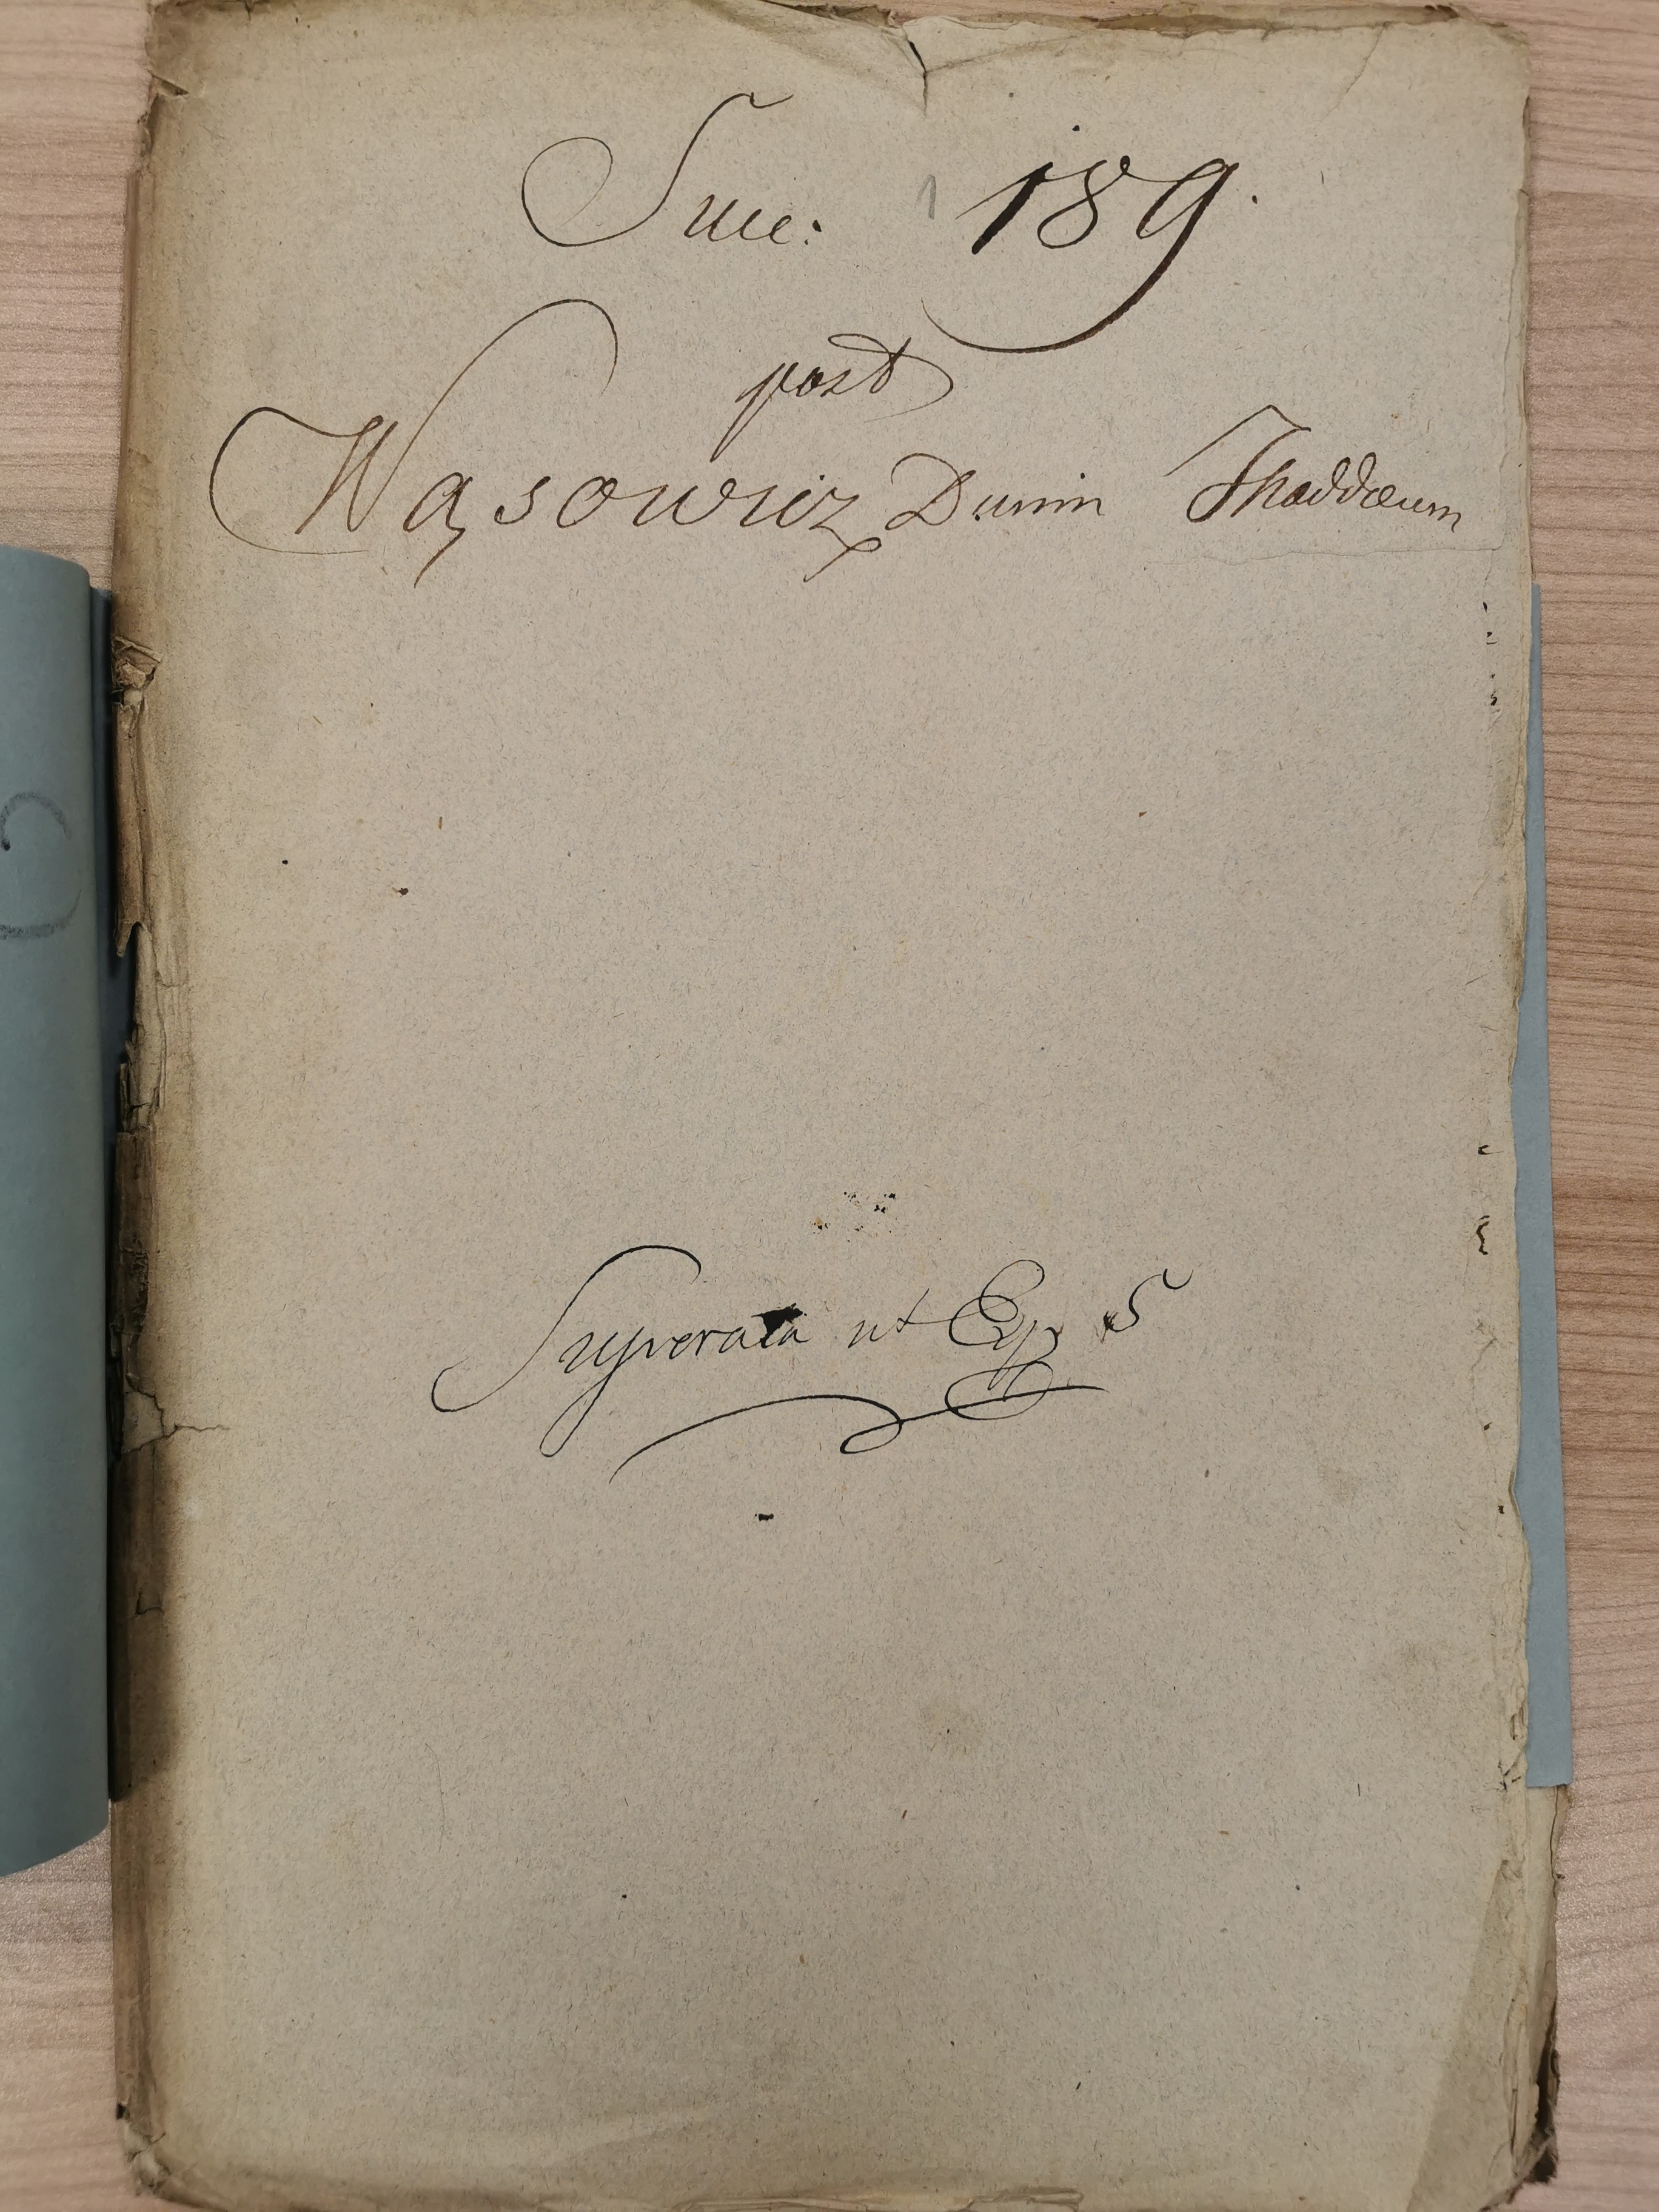 Succ: 1 189.
post
Wąsowicz Dunin Thaddæum
Superata ut Exp 5